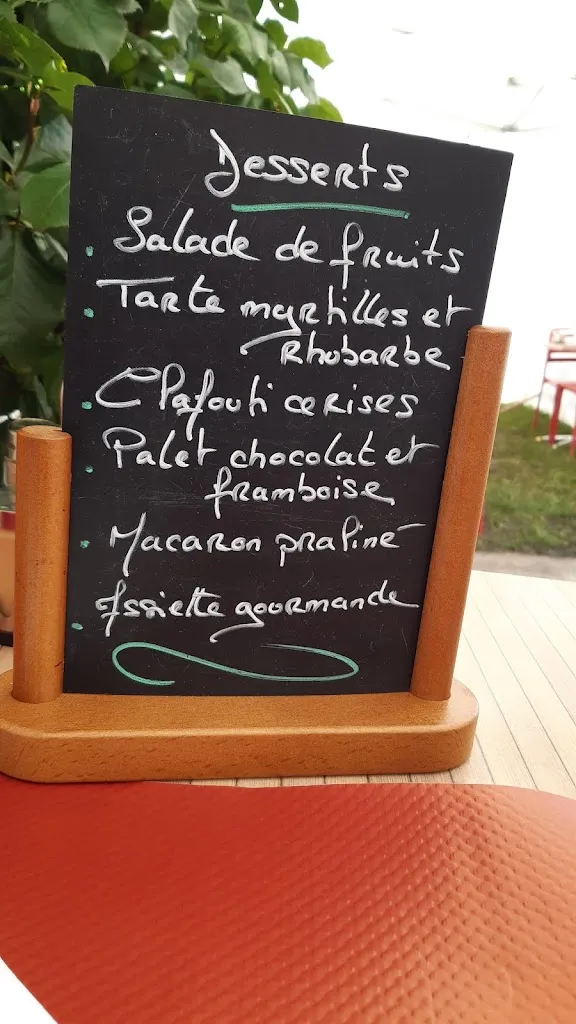 Desserts
• Salade de fruits
• Tarte myrtilles et
Rhubarbe
• Clafouti cerises
• Palet chocolat et
framboise
• Macaron praliné
• Assiette gourmande